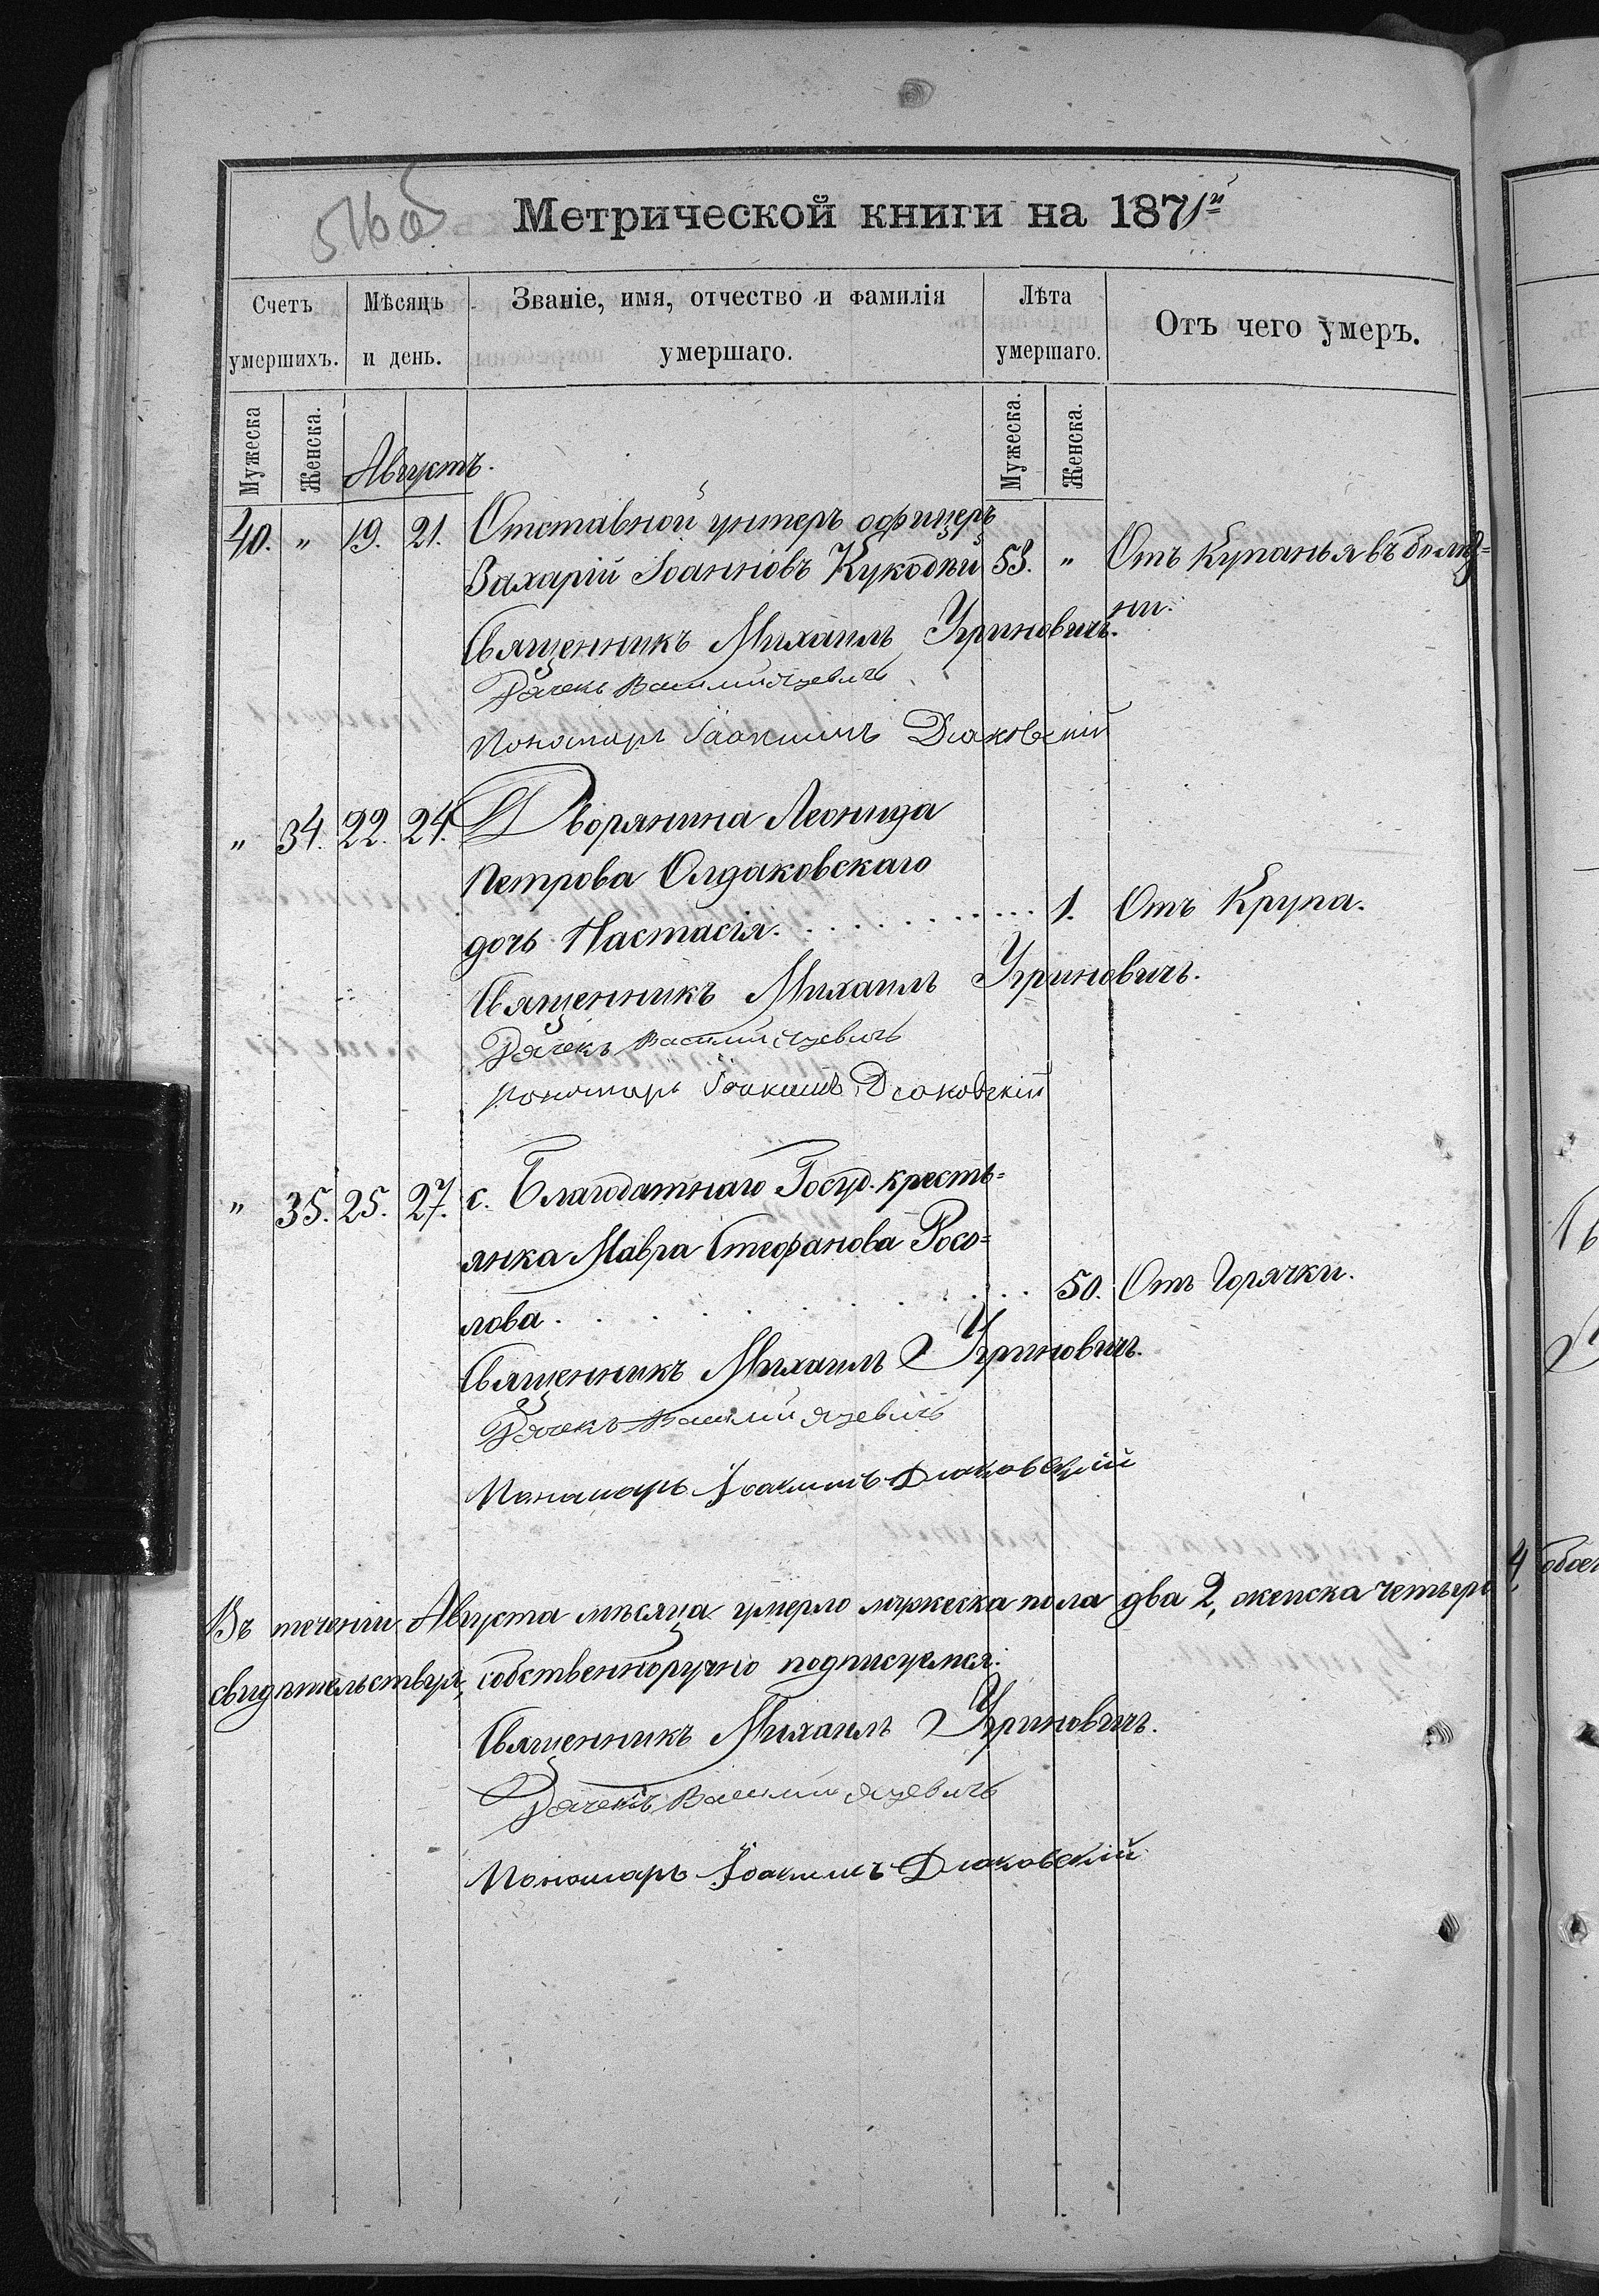 516 об
Метрической книги на 1871й
Счетъ умершихъ.
Мѣсяцъ и день.
Званіе, имя, отчество и фамилія умершаго.
Лѣта умершаго.
Отъ чего умеръ.
Мужеска
Женска.
Августъ.
Мужеска.
Женска.
40. „ 19. 21. Отставной унтеръ офицеръ
Захарій Іоанновъ 53. „ Отъ Купанья въ болѣз=
ни.
Священникъ Михаилъ Угриновичъ.
Дячекъ Василий Яцевичъ
Пономарь Іоакимъ Дьяковскій
„ 34. 22. 24. Дворянина Леонида
Петрова Олдаковскаго
дочь Настасія. 1. Отъ Крупа.
Священникъ Михаилъ Угриновичъ.
Дячекъ Василий Яцевичъ
Пономарь Іоакимъ Дьяковскій
„ 35. 25. 27. с. Благодатнаго Госуд. кресть=
янка Мавра Стефанова Росо=
лова 50. Отъ Горячки.
Священникъ Михаилъ Угриновичъ.
Дячекъ Василий Яцевичъ
Пономарь Іоакимъ Дьяковскій
Въ теченіи Августа мѣсяца умерло мужеска пола два 2, женска четыре 4,
свидѣтельствуя, собственноручно подписуемся:
Священникъ Михаилъ Угриновичъ.
Дячекъ Василий Яцевичъ
Пономарь Іоакимъ Дьяковскій